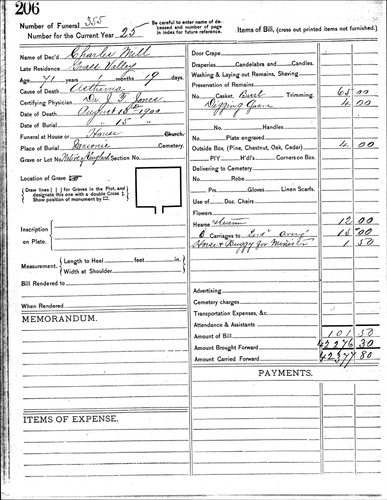 206
Number of Funeral 355
Number for the Current Year 25
Be careful to enter name of deceased and number of page in index for future reference.
Items of Bill, (cross out printed items not furnished.)
Name of Dec'd Charles Mill
Late Residence Grass Valley
Age 71 1 months 19 days
Cause of Death Asthma
Certifying Physician Dr J. T. Jones
Date of Death August 13th 1900
Date of Burial " 15" "
Funeral at House or House Church
Place of Burial Cemetery.
Grave or Lot No. Native of England Section No.
Location of Grave
Draw lines for Graves in the Plot, and designate this one with a double Cross. Show position of monument by
Inscription on Plate.
Measurement. Length to Heel feet in.
Width at Shoulder
Bill Rendered to
When Rendered
MEMORANDUM.
ITEMS OF EXPENSE.
Door Crape
Draperies Candelabra and Candles.
Washing & Laying out Remains, Shaving
Preservation of Remains
No. Casket, Burl Trimming. 65 00
Digging Grave 4 00
No. Handles
No. Plate engraved
Outside Box (Pine, Chestnut, Oak, Cedar) 4 00
PIY H'd's Corners on Box.
Delivering to Cemetery
No. Robe
No. Gloves Linen Scarfs.
Use of Doz. Chairs
Flowers
Hearse 12 00
6 Carriages to 15 00
Horse & Buggy for Minister 1 50
Advertising
Cemetery charges
Transportation Expenses, &c.
Attendance & Assistants
Amount of Bill 101 50
Amount Brought Forward 42276 30
Amount Carried Forward 42377 80
PAYMENTS.